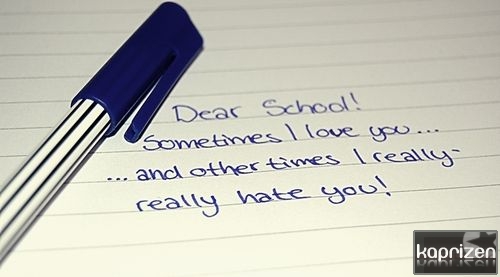 Dear School!
Sometimes I love you...
...and other times I really-
really hate you!
kaprizen